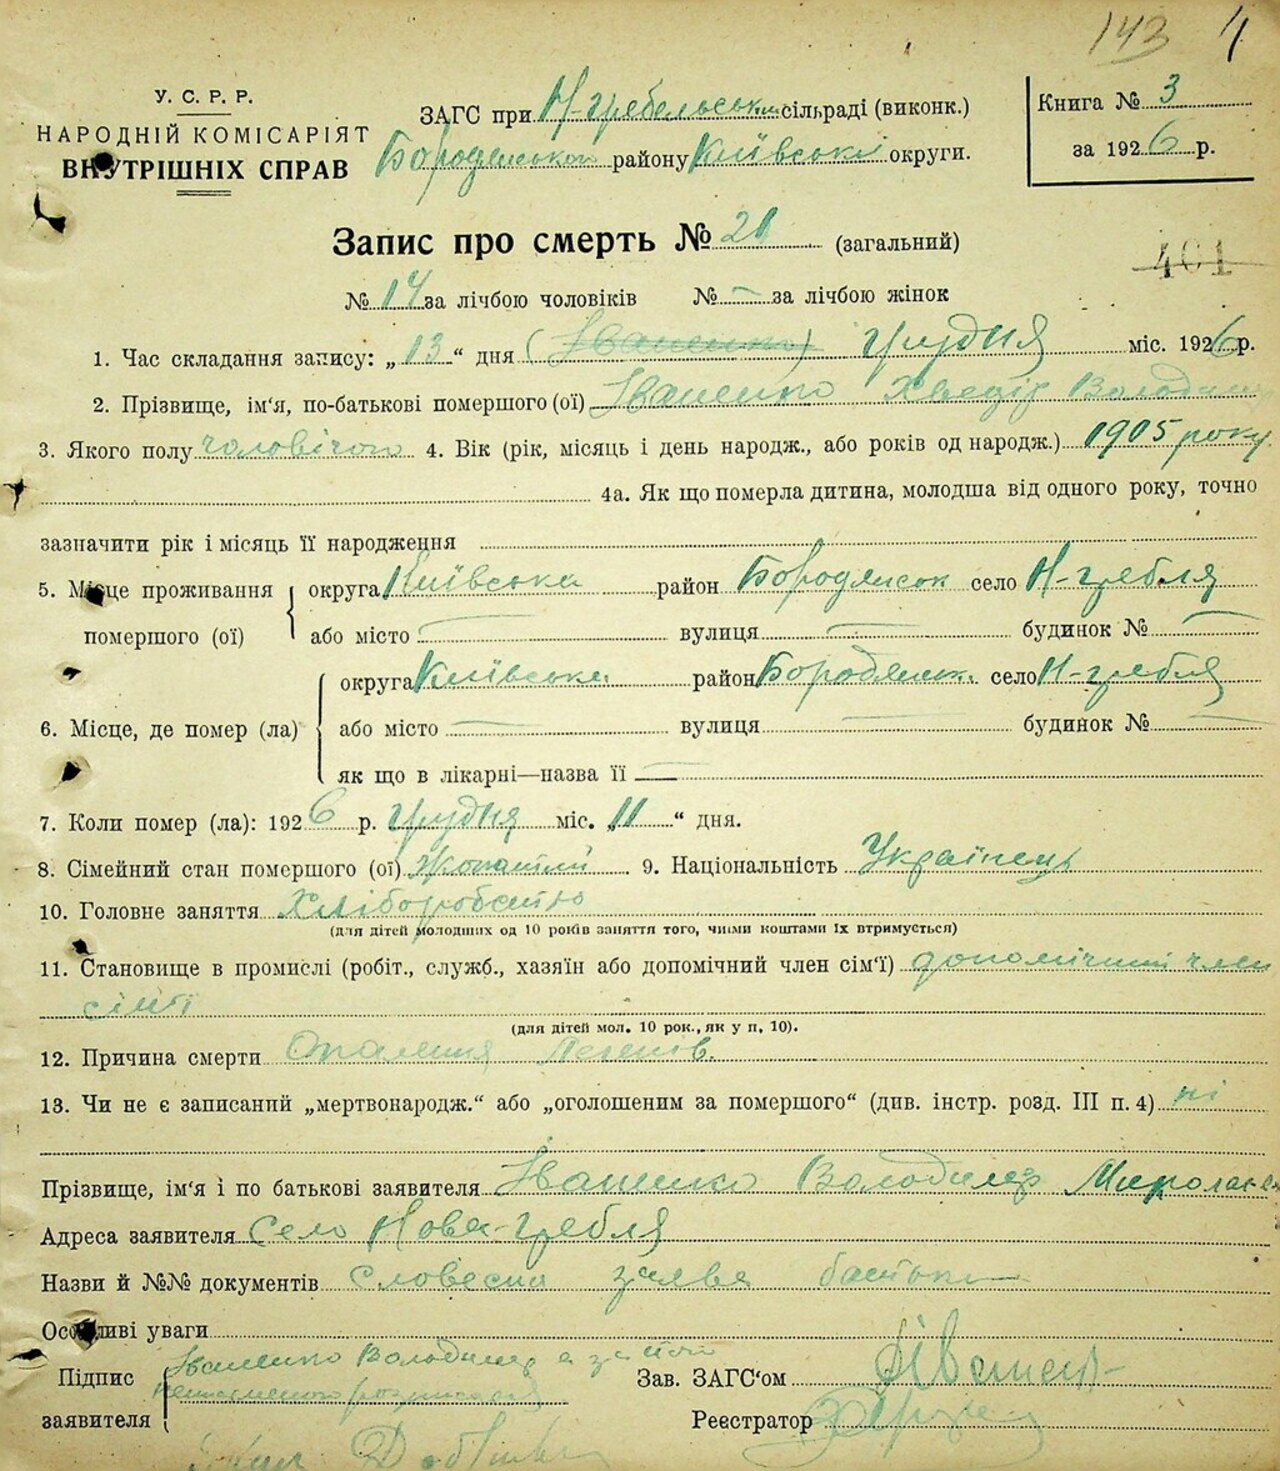 143
У. С. Р. Р.
НАРОДНІЙ КОМІСАРІЯТ
ВНУТРІШНІХ СПРАВ
ЗАГС при Н-гребельськім сільраді (виконк.)
Бородянського району Київської округи.
Книга № 3
за 1926 р.
Запис про смерть № 21 (загальний)
401
№ 14 за лічбою чоловіків № — за лічбою жінок
1. Час складання запису: „13“ дня (Іваненко) грудня міс. 1926 р.
2. Прізвище, ім‘я, по-батькові помершого (ої) Іваненко Хведір Володим
3. Якого полу чоловічого 4. Вік (рік, місяць і день народж., або років од народж.) 1905 року
4а. Як що померла дитина, молодша від одного року, точно
зазначити рік і місяць її народження
5. Місце проживання помершого (ої) округа Київська район Бородянськ село Н-гребля
або місто — вулиця — будинок № —
6. Місце, де помер (ла) округа Київська район Бородянськ. село Н-гребля
або місто — вулиця — будинок № —
як що в лікарні—назва її —
7. Коли помер (ла): 1926 р. грудня міс. „11“ дня.
8. Сімейний стан помершого (ої) Жонатий 9. Національність Українець
10. Головне заняття Хліборобство
(для дітей молодших од 10 років заняття того, чиїми коштами їх втримується)
11. Становище в промислі (робіт., служб., хазяїн або допомічний член сім‘ї) допомічний член
сімї
(для дітей мол. 10 рок., як у п. 10).
12. Причина смерти Опалення Легенів.
13. Чи не є записаний „мертвонародж.“ або „оголошеним за помершого“ (див. інстр. розд. III п. 4) ні
Прізвище, ім‘я і по батькові заявителя Іваненко Володимер Миколаєв
Адреса заявителя Село Нова-гребля
Назви й №№ документів Словесна заява батька
Особливі уваги
Підпис заявителя Іваненко Володимер а за його
неписьменного розписався
Зав. ЗАГС‘ом
Реєстратор